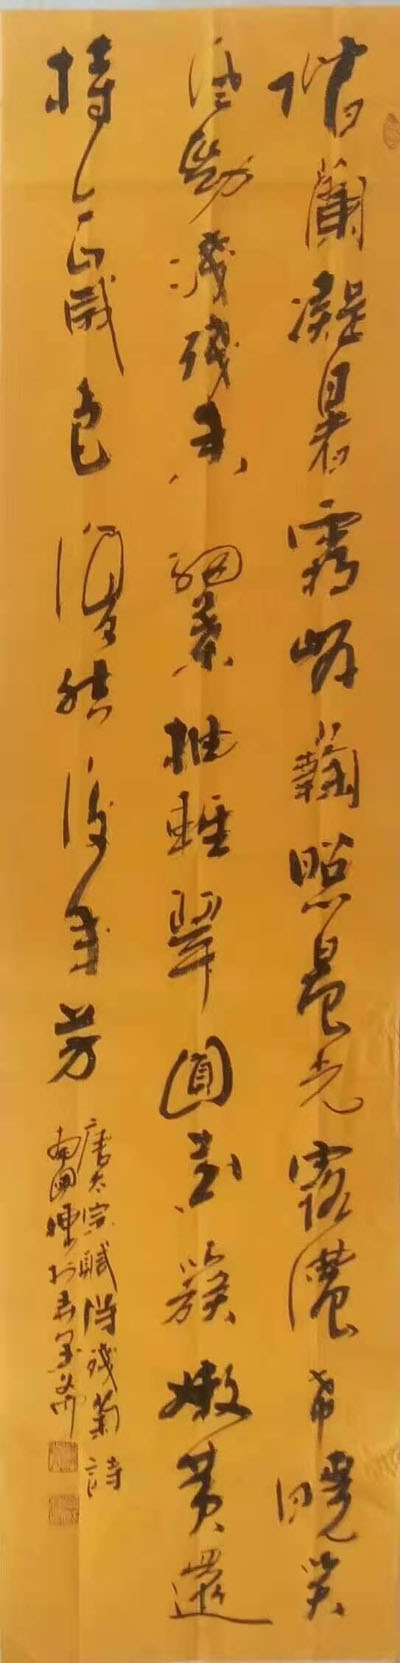 階蘭凝曙霜岸菊照晨光露濃希曉笑
風勁淺殘香細葉抽輕翠圓花簇嫩黃還
持今歲色復結後年芳
唐太宗賦得殘菊詩